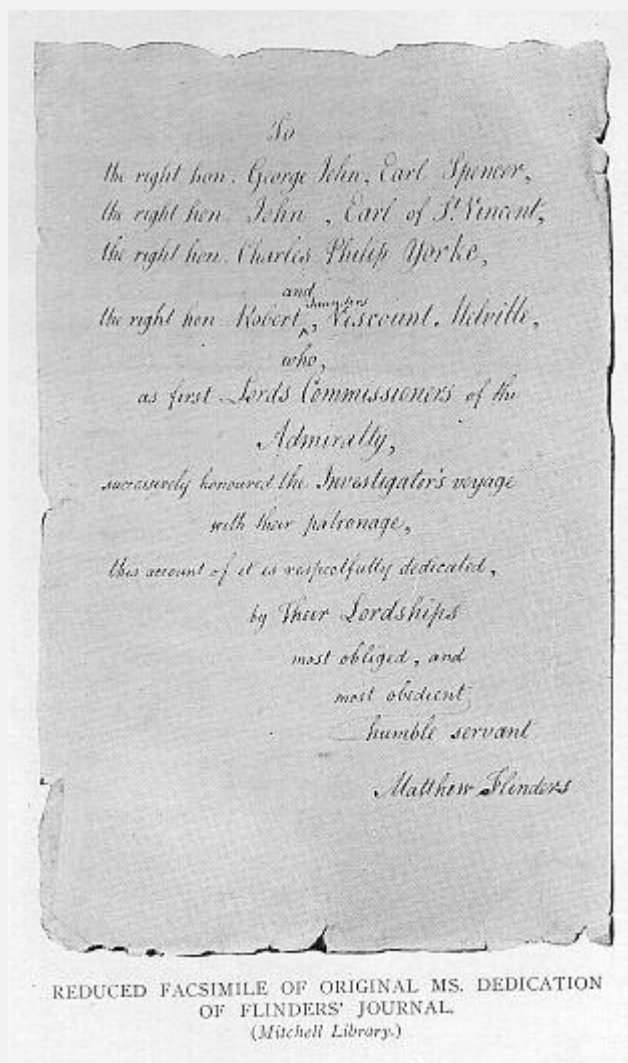 To
the right hon. George John, Earl Spencer,
the right hon. John , Earl of St. Vincent,
the right hon. Charles Philip Yorke,
and
Saunders
the right hon. Robert ^, Viscount. Melville,
who,
as first Lords Commissioners of the
Admiralty,
successively honoured the Investigator's voyage
with their patronage,
this account of it is respectfully dedicated,
by Their Lordships
most obliged, and
most obedient
humble servant
Matthew Flinders
REDUCED FACSIMILE OF ORIGINAL MS. DEDICATION
OF FLINDERS' JOURNAL.
(Mitchell Library.)